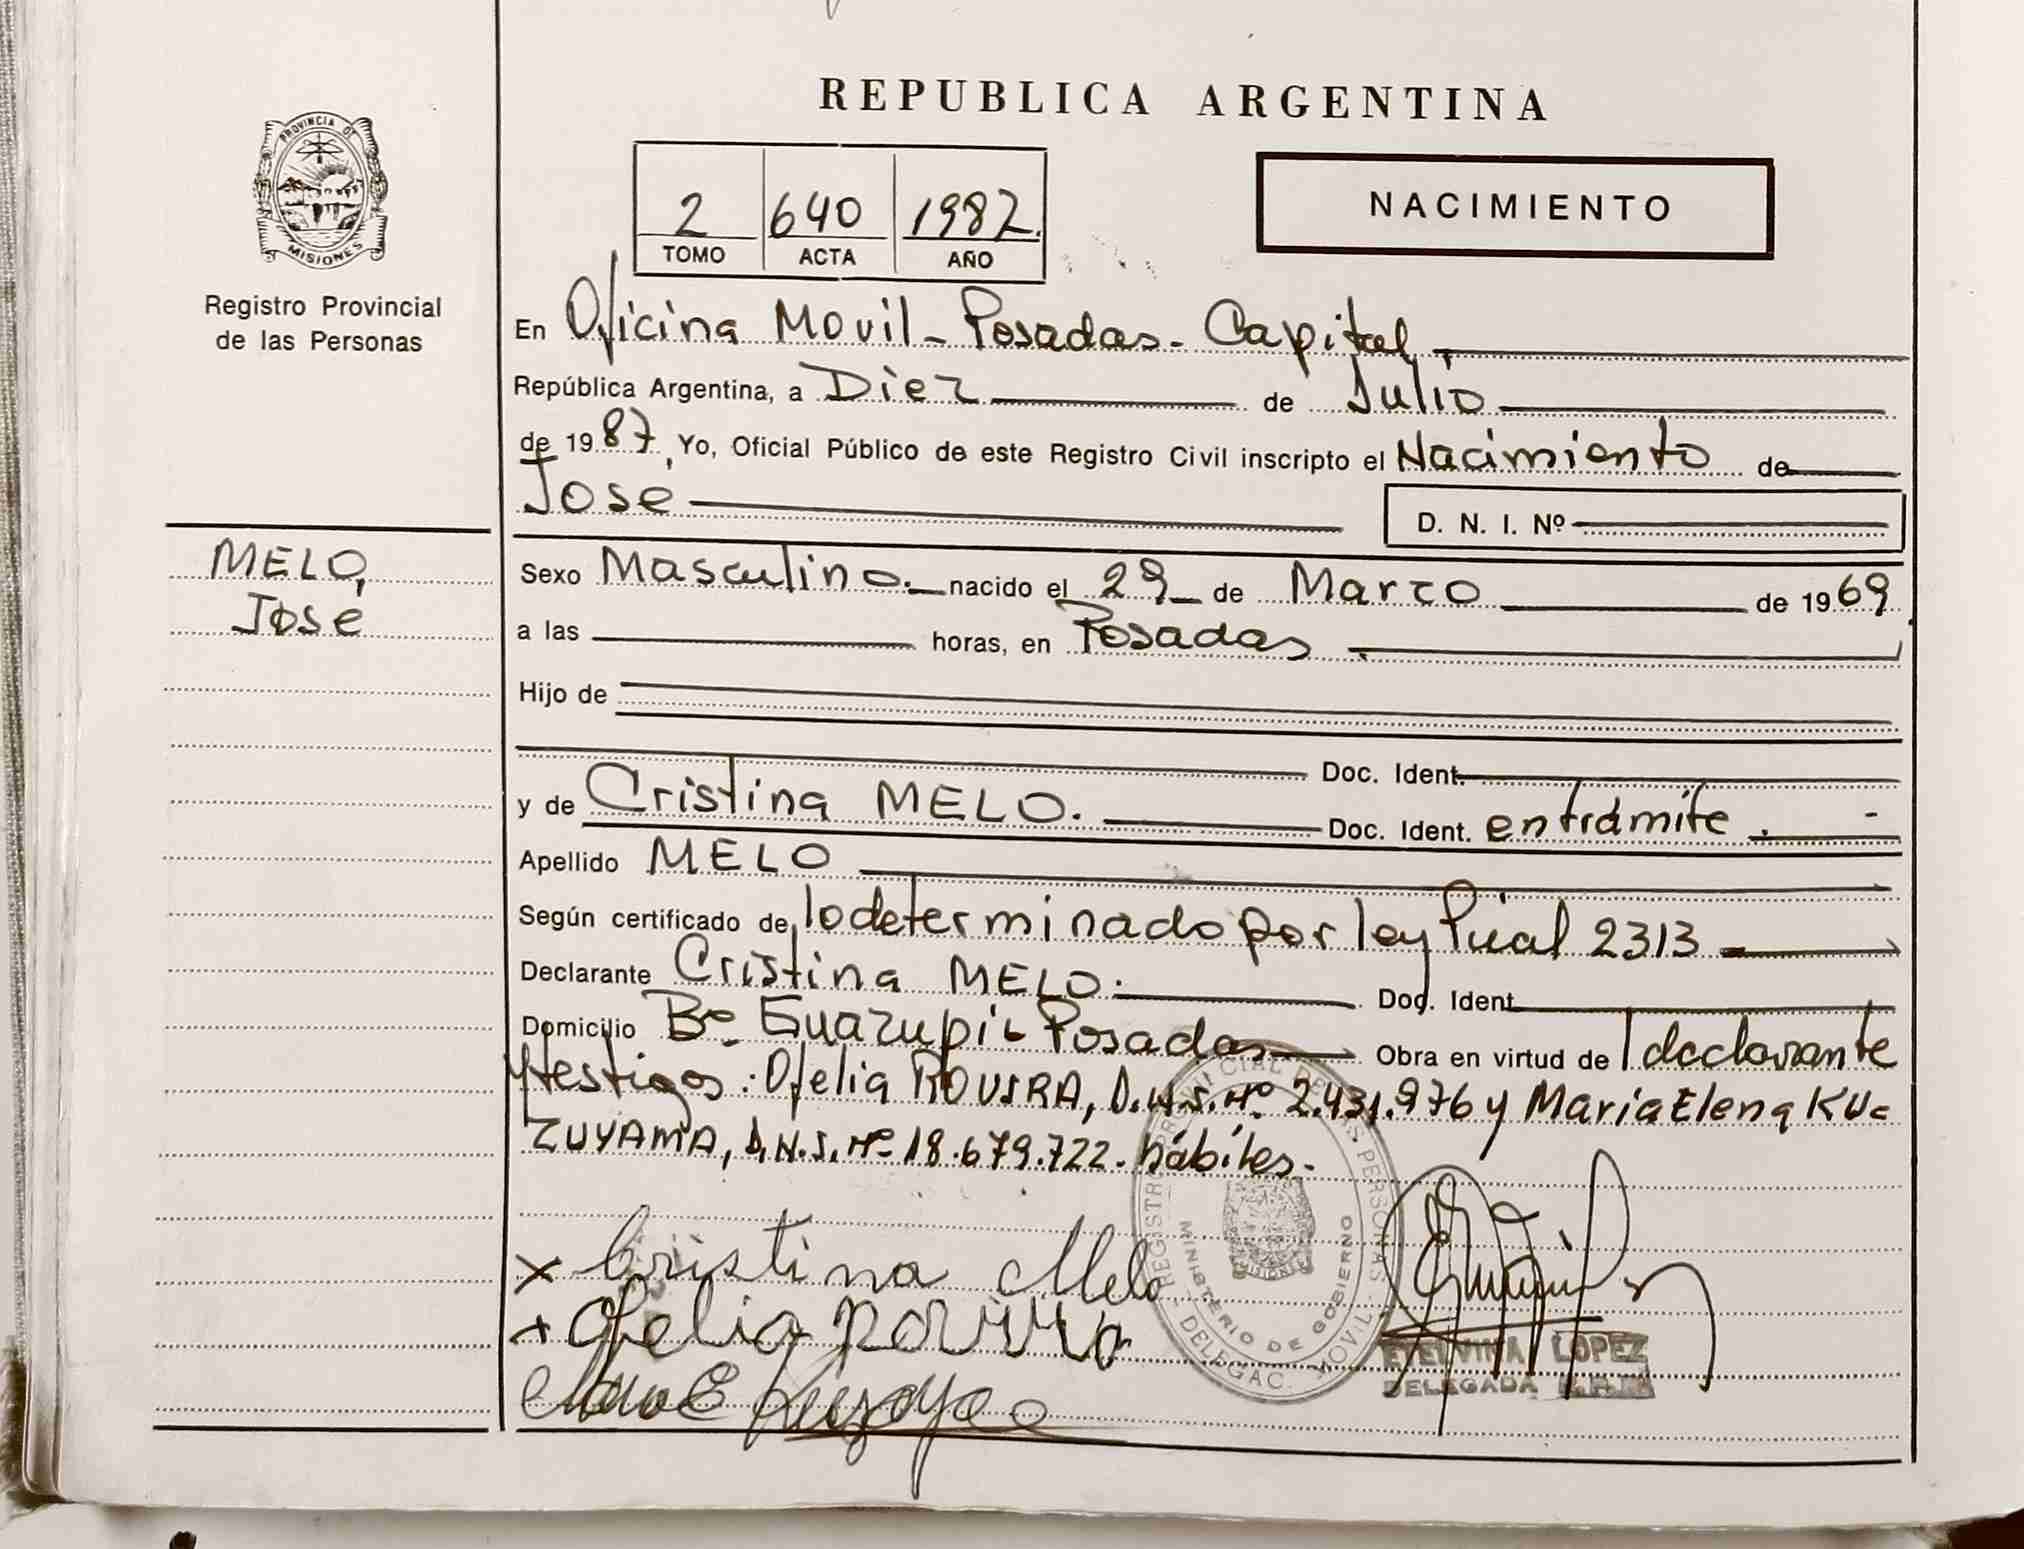 REPUBLICA ARGENTINA
PROVINCIA DE MISIONES
Registro Provincial
de las Personas
2 640 1987.
TOMO ACTA AÑO
NACIMIENTO
En Oficina Movil - Posadas - Capital
República Argentina, a Diez de Julio
de 1987, Yo, Oficial Público de este Registro Civil inscripto el Nacimiento de
Jose D. N. I. Nº
MELO,
Jose
Sexo Masculino. nacido el 29 de Marzo de 1969
a las horas, en Posadas
Hijo de
Doc. Ident.
y de Cristina MELO. Doc. Ident. en trámite.
Apellido MELO
Según certificado de lo determinado por ley Pcial 2313
Declarante Cristina MELO. Doc. Ident.
Domicilio Bº Posadas Obra en virtud de l declarante
y testigos: Ofelia ROVIRA, D.N.I. Nº 2.431.976 y Maria Elena KU=
ZUYAMA, D.N.I. Nº 18.679.722. hábiles.
x Cristina Melo
+ Ofelia
REGISTRO PROVINCIAL DE LAS PERSONAS
MINISTERIO DE GOBIERNO
DELEGAC. MOVIL
MISIONES
ETELVINA LOPEZ
DELEGADA